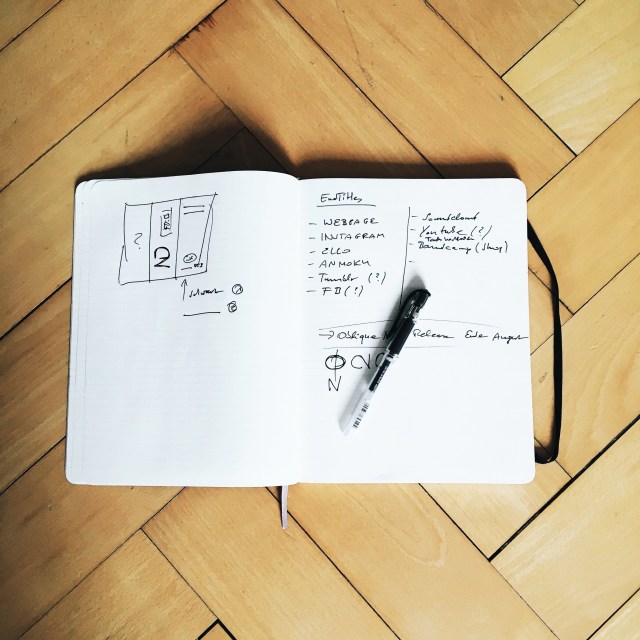 ?
2
EndTitles
- WEBPAGE
- INSTAGRAM
- ELLO
- Tumblr (?)
- FB (?)
- Soundcloud
- Youtube (?)
- Bandcamp (Shop)
-
→ Oblique Release Ende August
N